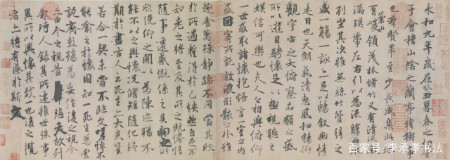 永和九年歲在癸丑暮春之初會
于會稽山陰之蘭亭脩稧事
也群賢畢至少長咸集此地
有崇山峻領茂林脩竹又有清流激
湍暎帶左右引以為流觴曲水
列坐其次雖無絲竹管弦之
盛一觴一詠亦足以暢敘幽情
是日也天朗氣清惠風和暢仰
觀宇宙之大俯察品類之盛
所以遊目騁懷足以極視聽之
娛信可樂也夫人之相與俯仰
一世或取諸懷抱悟言一室之內
或因寄所託放浪形骸之外雖
趣舍萬殊靜躁不同當其欣
於所遇蹔得於己快然自足不
知老之將至及其所之既惓情
隨事遷感慨係之矣向之所
欣俛仰之閒以為陳迹猶不
能不以之興懷況脩短隨化終
期於盡古人云死生亦大矣豈
不痛哉每攬昔人興感之由
若合一契未嘗不臨文嗟悼不
能喻之於懷固知一死生為虛
誕齊彭殤為妄作後之視今
亦由今之視昔悲夫故列
敘時人錄其所述雖世殊事
異所以興懷其致一也後之攬
者亦將有感於斯文
百家号/李承孝书法